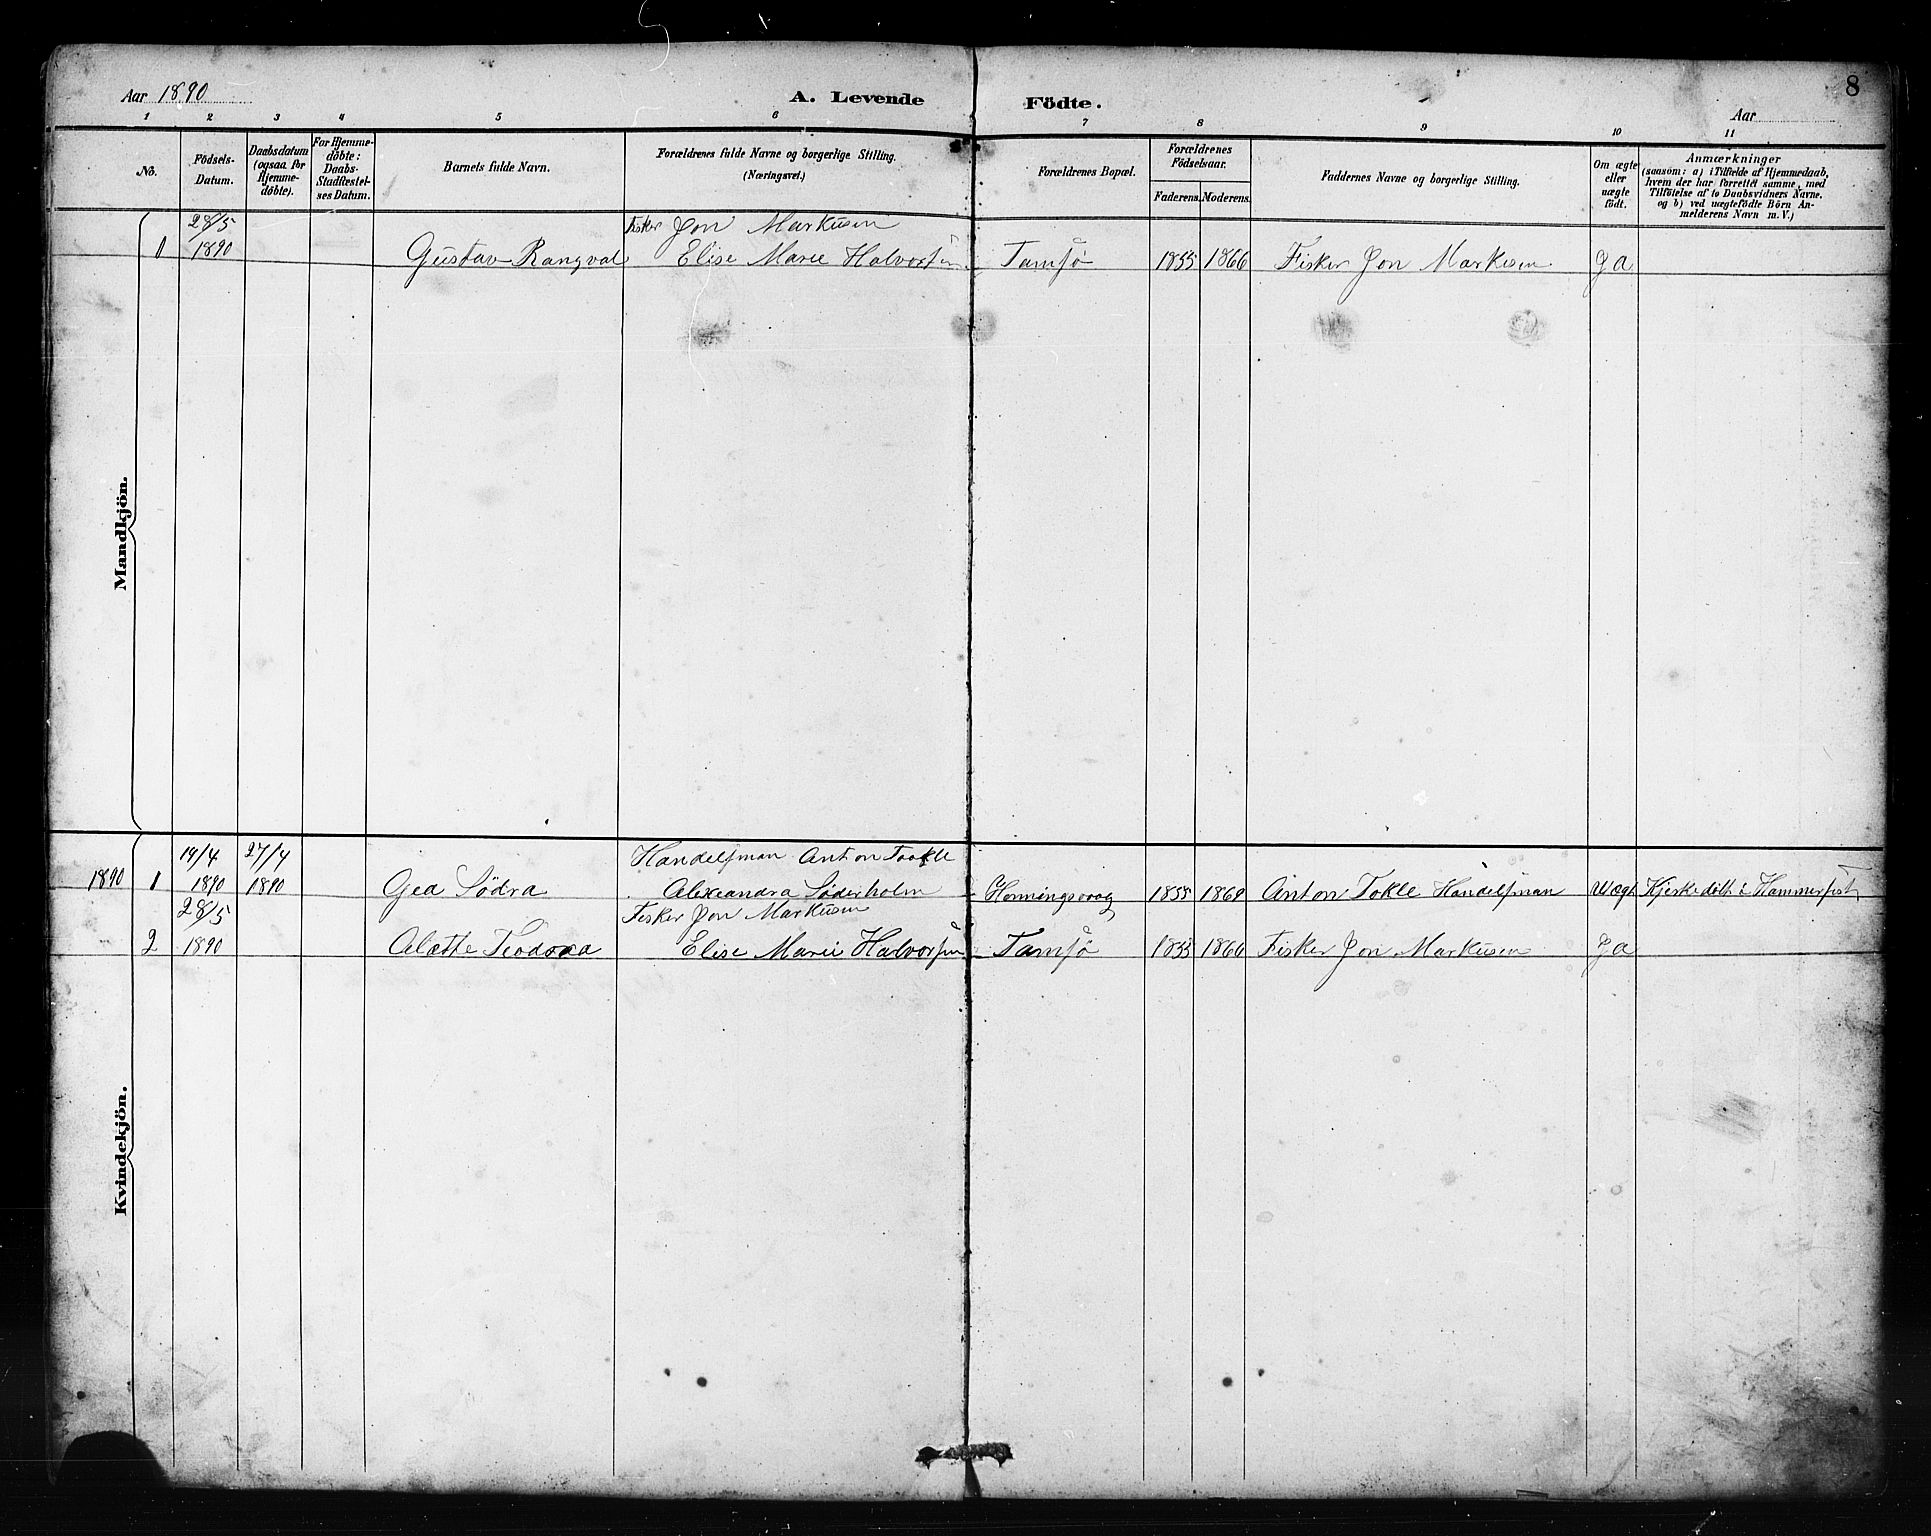 8
Aar 1890
A. Levende Födte.
Aar
1 2 3 4 5 6 7 8 9 10 11
No.
Födsels-Datum.
Daabsdatum (ogsaa for Hjemme-döbte).
For Hjemme-döbte: Daabs-Stadfæstel-ses Datum.
Barnets fulde Navn.
Forældrenes fulde Navne og borgerlige Stilling. (Næringsvei.)
Forældrenes Bopæl.
Forældrenes Födselsaar.
Faderens. Moderens.
Faddernes Navne og borgerlige Stilling.
Om ægte eller uægte födt.
Anmærkninger
(saasom: a) i Tilfælde af Hjemmedaab,
hvem der har forrettet samme, med
Tilföielse af to Daabsvidners Navne,
og b) ved uægtefödte Börn An-
melderens Navn m. V.)
Mandkjön.
28/5 Fisker Jon Markusen
1 1890 Gustav Rangval Elise Marie Halvorsen Tamsø 1855 1866 Fisker Jon Markusen Ja
Kvindekjön.
19/4 27/4 Handelsman Anton Tokle
1890 1 1890 1890 Gea Södra Alexandra Söderholm Honningsvaag 1855 1869 Anton Tokle Handelsman Uægt Kjerkedöbt i Hammerfest
28/5 Fisker Jon Markusen
2 1890 Alætte Teodora Elise Marie Halvorsen Tamsø 1855 1866 Fisker Jon Markusen Ja